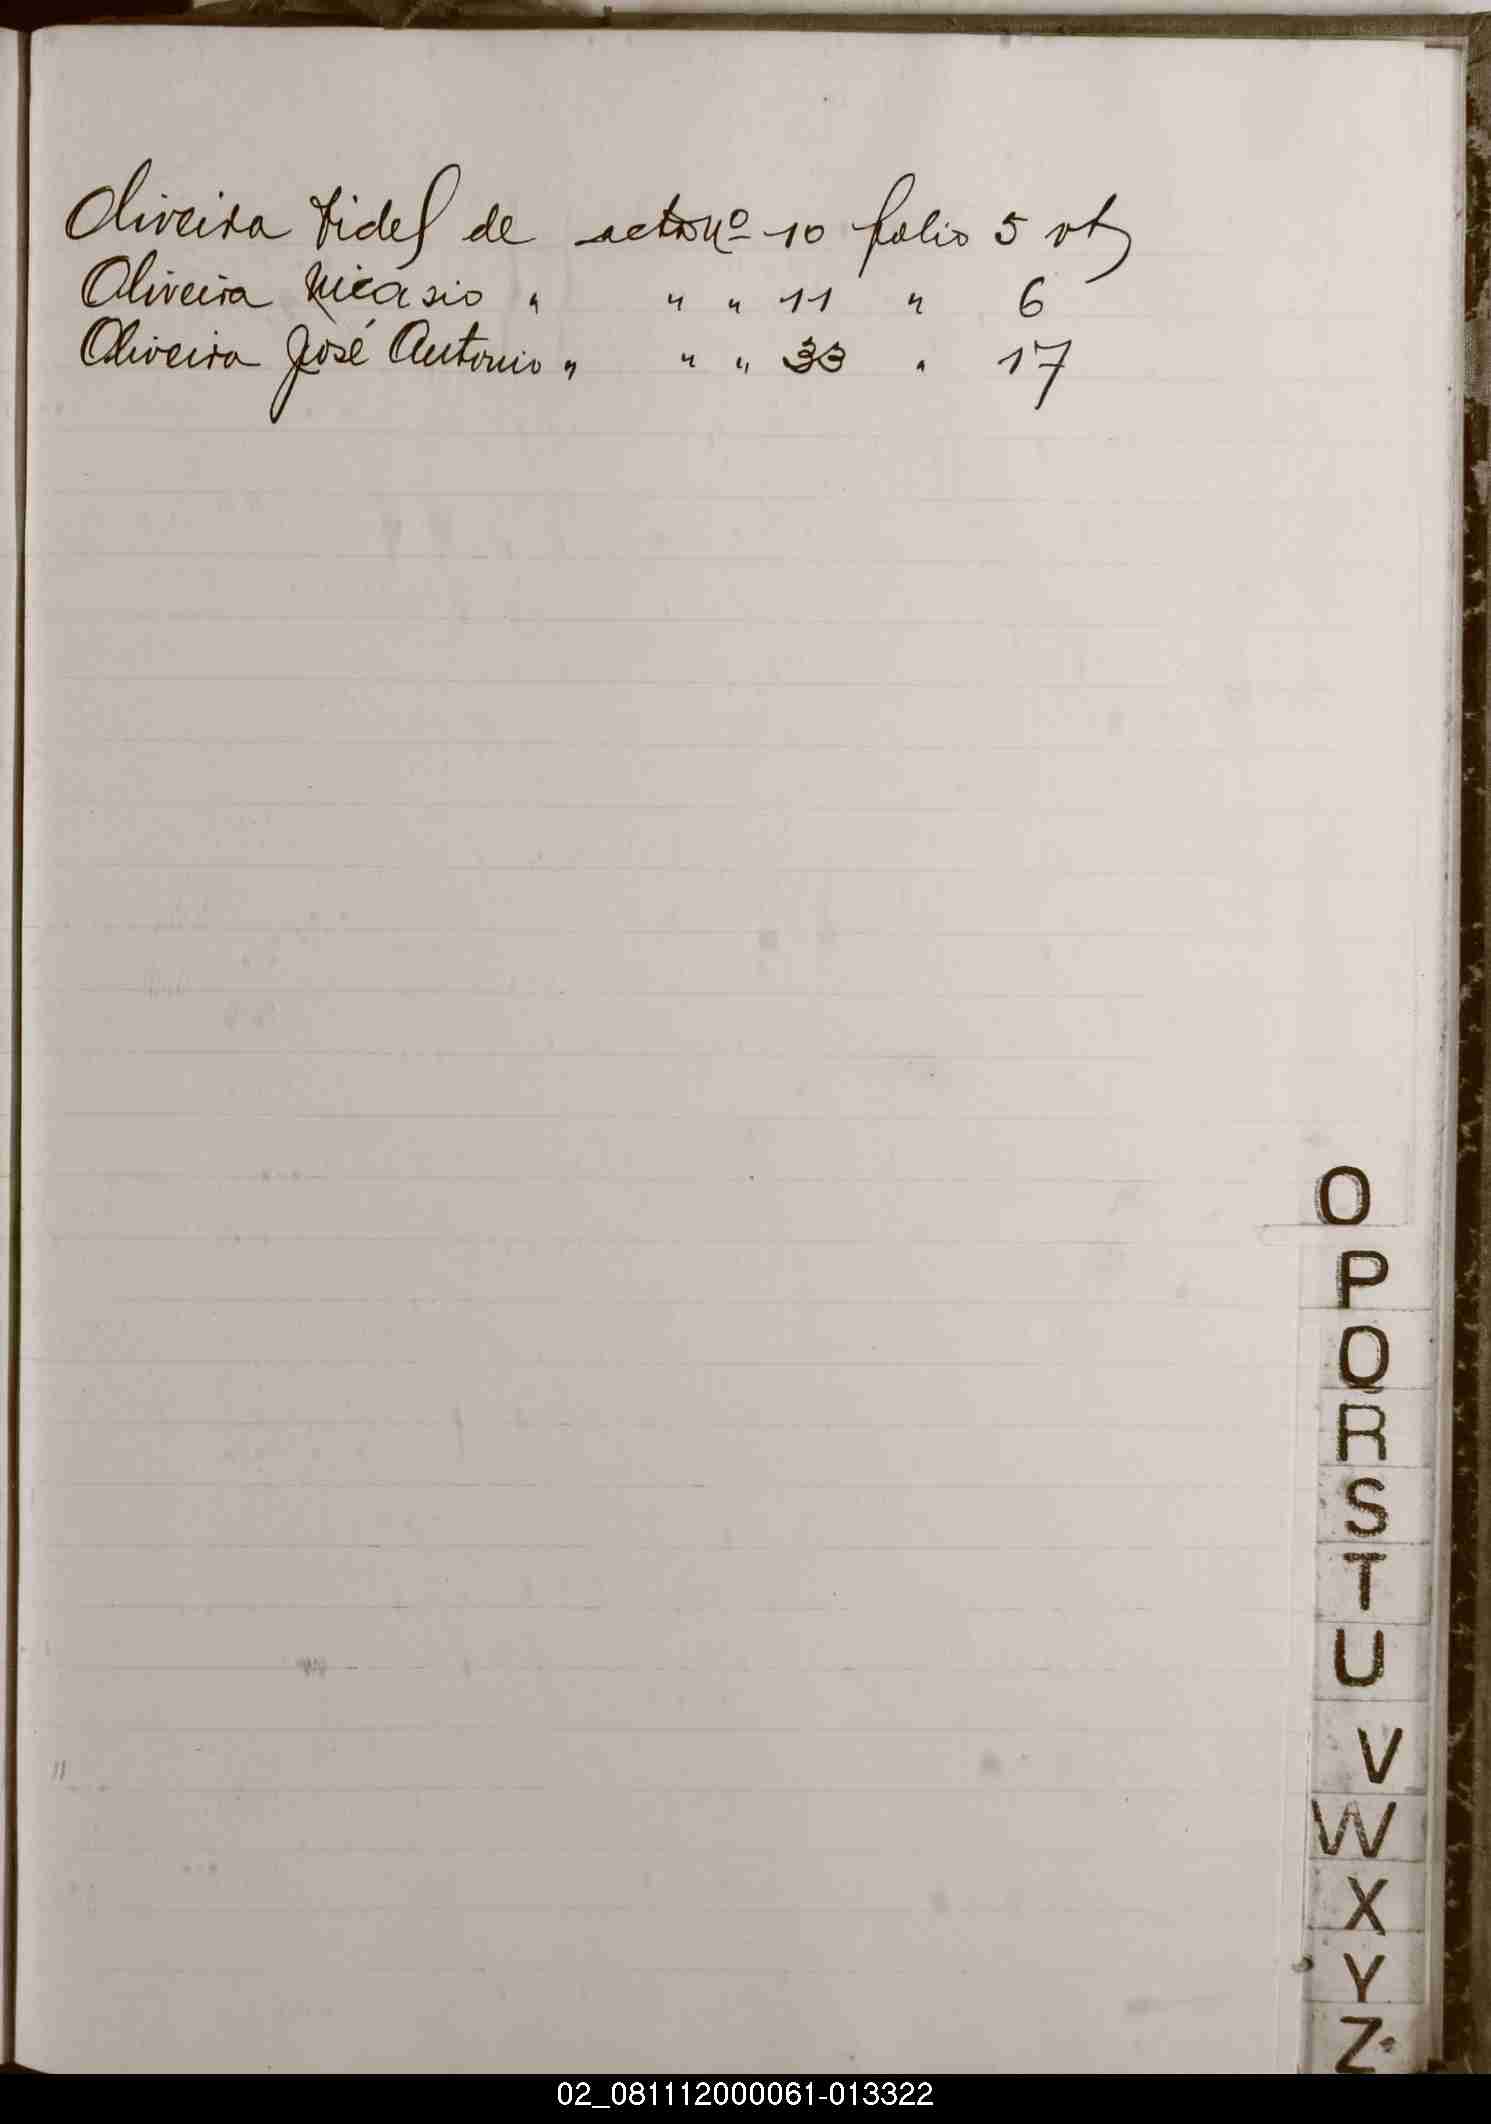 Oliveira Fidel de acta nº 10 folio 5 vt
Oliveira Nicasio " " " 11 " 6
Oliveira José Antonio " " " 33 " 17
O
P
Q
R
S
T
U
V
W
X
Y
Z
02_081112000061-013322